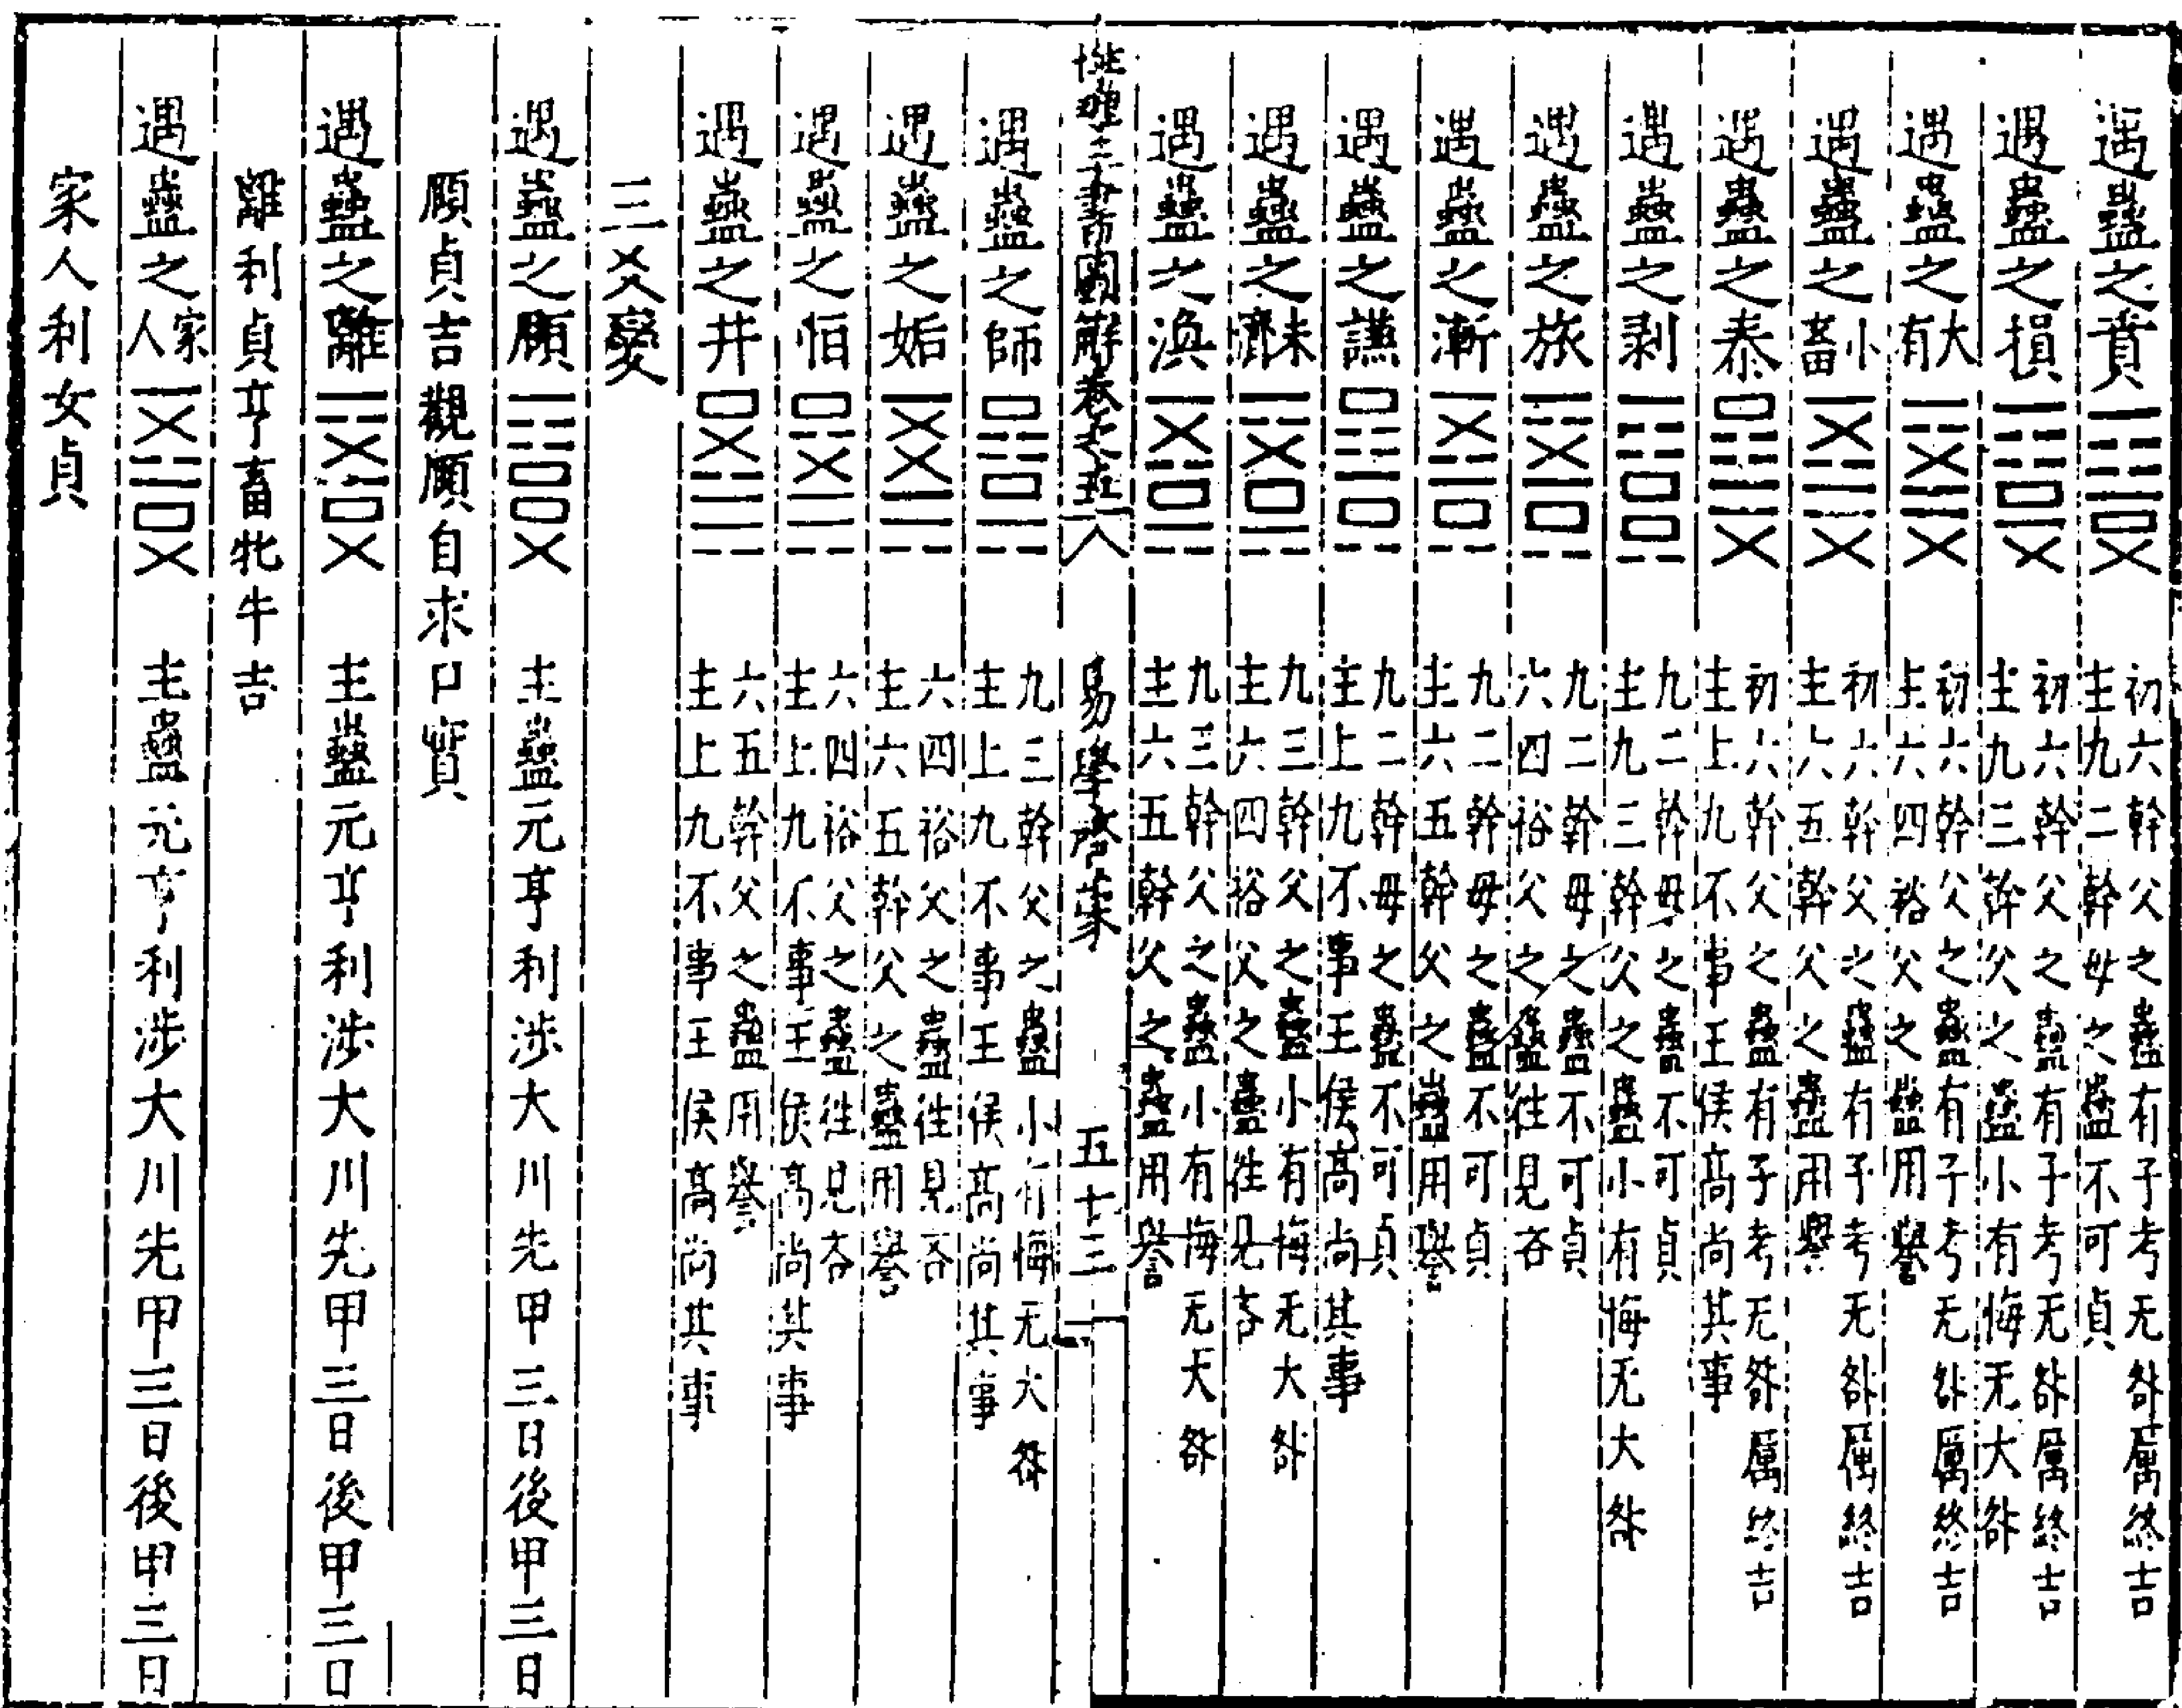 遇蠱之賁
初六幹父之蠱有子考无咎厲終吉
主九二幹母之蠱不可貞
遇蠱之損
初六幹父之蠱有子考无咎厲終吉
主九三幹父之蠱小有悔无大咎
遇蠱之大有
初六幹父之蠱有子考无咎厲終吉
主六四裕父之蠱用譽
遇蠱之小畜
初六幹父之蠱有子考无咎厲終吉
主六五幹父之蠱用譽
遇蠱之泰
初六幹父之蠱有子考无咎厲終吉
主上九不事王侯高尚其事
遇蠱之剥
九二幹母之蠱不可貞
主九三幹父之蠱小有悔无大咎
遇蠱之旅
九二幹母之蠱不可貞
六四裕父之蠱往見吝
遇蠱之漸
九二幹母之蠱不可貞
主六五幹父之蠱用譽
遇蠱之謙
九二幹母之蠱不可貞
主上九不事王侯高尚其事
遇蠱之未濟
九三幹父之蠱小有悔无大咎
主六四裕父之蠱往見吝
遇蠱之渙
九三幹父之蠱小有悔无大咎
主六五幹父之蠱用譽
性理三書圖解卷之五 易學啓蒙 五十三
遇蠱之師
九三幹父之蠱小有悔无大咎
主上九不事王侯高尚其事
遇蠱之姤
六四裕父之蠱往見吝
主六五幹父之蠱用譽
遇蠱之恒
六四裕父之蠱往見吝
主上九不事王侯高尚其事
遇蠱之井
六五幹父之蠱用譽
主上九不事王侯高尚其事
三爻變
遇蠱之頤 主蠱元亨利涉大川先甲三日後甲三日
頤貞吉觀頤自求口實
遇蠱之離 主蠱元亨利涉大川先甲三日後甲三日
離利貞亨畜牝牛吉
遇蠱之家人 主蠱元亨利涉大川先甲三日後甲三日
家人利女貞